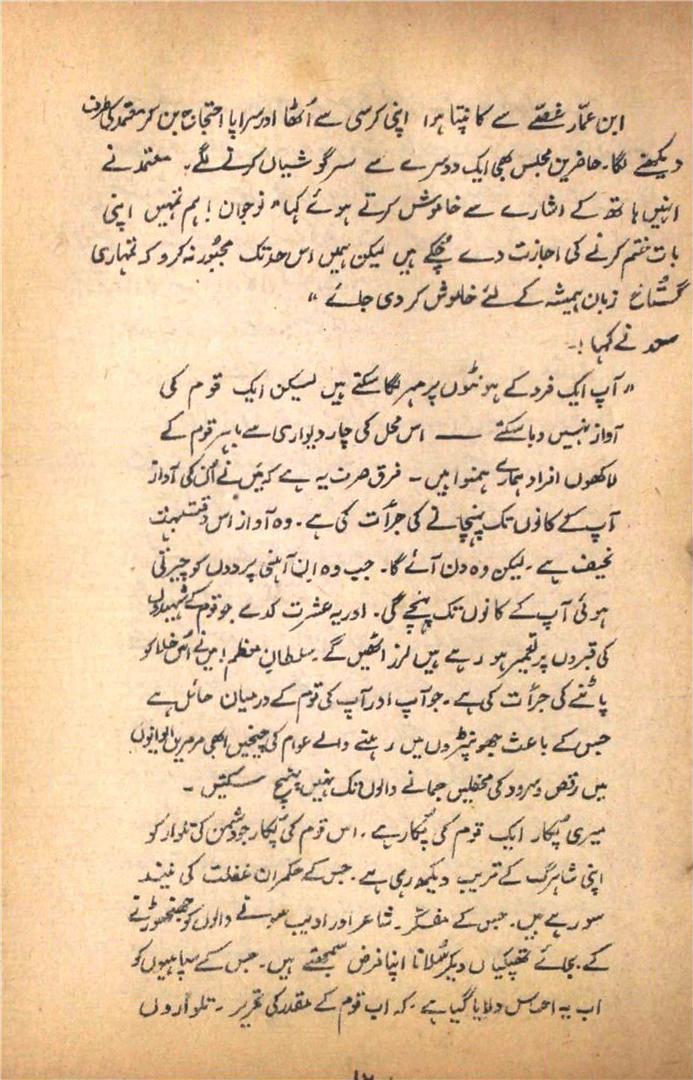 ابن عمّار غصّے سے کانپتا ہوا اپنی کرسی سے اُٹھا اور سراپا احتجاج بن کر معتمد کی طرف
دیکھنے لگا۔ حاضرین مجلس بھی ایک دوسرے سے سرگوشیاں کرنے لگے۔ معتمد نے
انہیں ہاتھ کے اشارے سے خاموش کرتے ہوئے کہا "نوجوان! ہم تمہیں اپنی
بات ختم کرنے کی اجازت دے چُکے ہیں لیکن ہمیں اس حد تک مجبُور نہ کرو کہ تمہاری
گستاخ زبان ہمیشہ کے لئے خاموش کر دی جائے"
سعد نے کہا !۔
"آپ ایک فرد کے ہونٹوں پر مہر لگا سکتے ہیں لیکن ایک قوم کی
آواز نہیں دبا سکتے —— اس محل کی چار دیواری سے باہر قوم کے
لاکھوں افراد ہمارے ہمنوا ہیں۔ فرق صرف یہ ہے کہ میں نے اُن کی آواز
آپ کے کانوں تک پہنچانے کی جرأت کی ہے۔ وہ آواز اس وقت بہت
نحیف ہے۔ لیکن وہ دن آئے گا۔ جب وہ ان آہنی پردوں کو چیرتی
ہوئی آپ کے کانوں تک پہنچے گی۔ اور یہ عشرت کدے جو قوم کے شہیدوں
کی قبروں پر تعمیر ہو رہے ہیں لرز اٹھیں گے۔ سلطانِ معظم! میں نے اُس خلا کو
پاٹنے کی جرأت کی ہے۔ جو آپ اور آپ کی قوم کے درمیان حائل ہے
جس کے باعث جھونپڑوں میں رہنے والے عوام کی چیخیں ابھی مرمریں ایوانوں
میں رقص و سرود کی محفلیں جمانے والوں تک نہیں پہنچ سکتیں۔
میری پُکار ایک قوم کی پُکار ہے۔ اس قوم کی پُکار جو دشمن کی تلوار کو
اپنی شاہرگ کے قریب دیکھ رہی ہے۔ جس کے حکمران غفلت کی نیند
سو رہے ہیں۔ جس کے مفکّر۔ شاعر اور ادیب سونے والوں کو جھنجھوڑنے
کے بجائے تھپکیاں دیکر سُلانا اپنا فرض سمجھتے ہیں۔ جس کے سپاہیوں کو
اب یہ احساس دلایا گیا ہے۔ کہ اب قوم کے مقدر کی تحریر۔ تلواروں